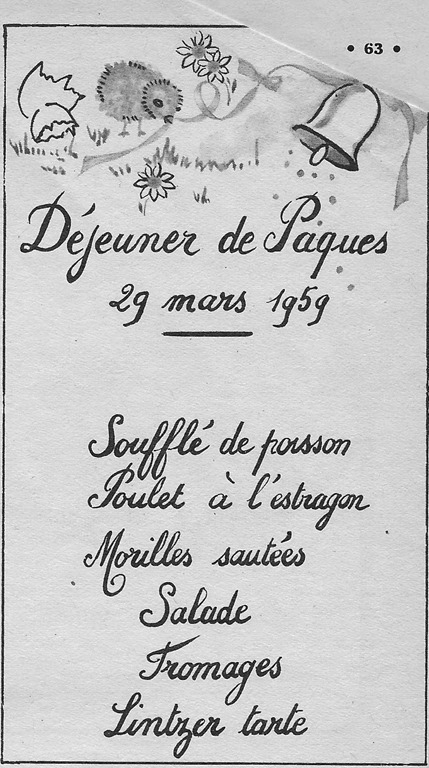 • 63 •
Déjeuner de Pâques
29 mars 1959
Soufflé de poisson
Poulet à l'estragon
Morilles sautées
Salade
Fromages
Lintzer tarte